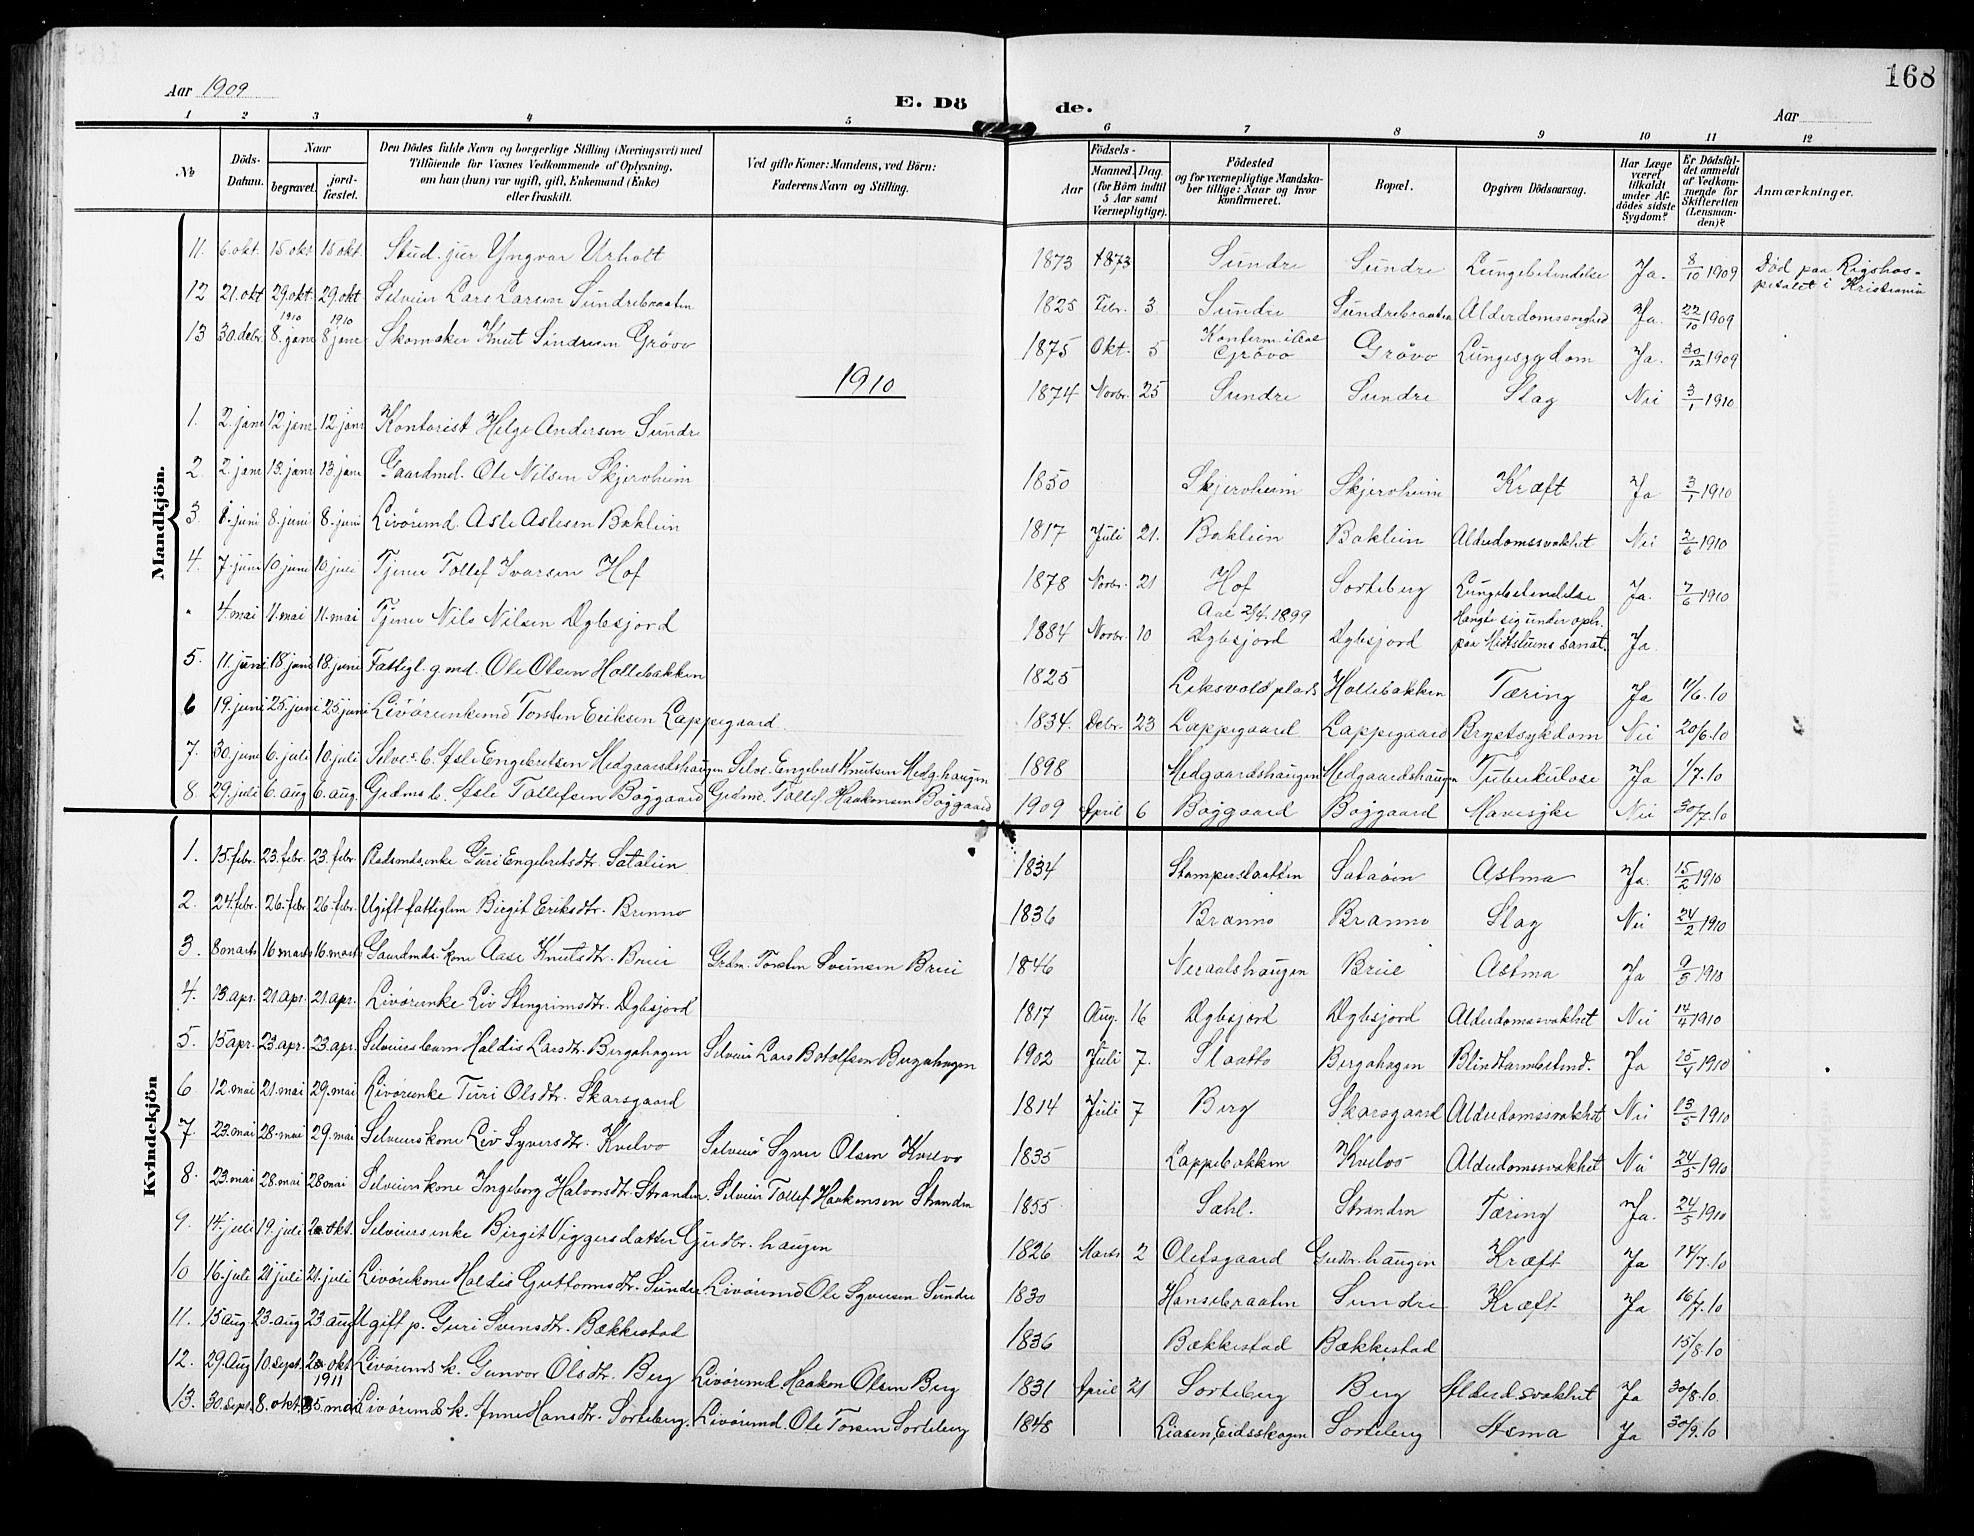 168
Aar 1909
E. Dö
de.
Aar
1 2 3 4 5 6 7 8 9 10 11 12
№
Döds-Datum.
Naar
begravet.
jord-fæstet.
Den Dödes fulde Navn og borgerlige Stilling (Næringsvei) med
Tilföiende for Voxnes Vedkommende af Oplysning,
om han (hun) var ugift, gift, Enkemand (Enke)
eller fraskilt.
Ved gifte Koner: Mandens, ved Börn:
Faderens Navn og Stilling.
Födsels-
Aar
Maaned. Dag.
(for Börn indtil
5 Aar samt
Værnepligtige).
Födested
og for værnepligtige Mandska-
ber tillige: Naar og hvor
konfirmeret.
Bopæl.
Opgiven Dödsaarsag.
Har Læge
været
tilkaldt
under Af-
dödes sidste
Sygdom?
Er Dödsfal-
det anmeldt
af Vedkom-
mende for
Skifteretten
(Lensman-
den)?
Anmærkninger.
Mandkjön.
11. 6. okt. 15 okt 15 okt. Stud. jur Yngvar Urholt 1873 1873 Sundre Sundre Lungebetendelse Ja. 8/10 1909 Död paa Rigshos-
pitalet i Kristiania
12 21. okt 29. okt. 29. okt Selveier Lars Larsen Sundrebraaten 1825 Febr. 3 Sundre Sundrebraaten Alderdomssvaghed Ja. 22/10 1909
1910 1910
13 30. debr. 8. janr 8 janr Skomaker Knut Sindresen Grövo 1875 Okt. 5 Konfirm. i Aal
Grövo Grövo Lungesygdom Ja. 30/12 1909
1910
1. 2. janr 12 janr. 12 janr Kontorist Helge Andersen Sundre 1874 Novbr. 25 Sundre Sundre Slag Nei 3/1 1910
2. 2. janr 13. janr 13. janr Gaardmd. Ole Nilsen Skjervheim 1850 Skjervheim Skjervheim Kræft Ja 3/1 1910
3. 1. juni 8. juni 8. juni Livörmd. Asle Aslesen Baklein 1817 Juli 21. Baklein Baklein Alderdomssvakhet Nei 2/6 1910
4. 7. juni 10 juni 10. juli Tjener Tollef Ivarsen Hof 1878 Novbr. 21 Hof Sorteberg Lungebetendelse Ja. 7/6 1910
" 4. mai 11. mai 11. mai Tjener Nils Nilsen Ygbsjord 1884 Novbr. 10 Aal 2/4. 1899
Ygbsjord Ygbsjord Hængte sig under oph.
paa Midtstuens sanat. Ja.
5. 11. juni 18 juni 18. juni Fattigl. g md. Ole Olsen Hollebakken 1825 Leksvold plads Hollebakken Tæring Ja 11/6.10
6 19. juni 25. juni 25 juni Livörenkemd Torsten Eriksen Lappegaard. 1834. Debr. 23 Lappegaard Lappegaard Brystsykdom Nei 20/6.10
7. 30. juni 6. juli 10. juli Selve. b. Asle Engebretsen Medgaardshaugen Selve. Engebret Knutsen Medg.haugen 1898 Medgaardshaugen Medgaardshaugen Tuberkulose Ja 1/7.10
8. 29. juli 6. aug 6. aug. Grdms b. Asle Tollefsen Böygaard Grdmd. Tollef Haakonsen Böygaard 1909 April 6 Böygaard Böygaard Mavesyke Nei 30/7.10
Kvindekjön
1. 15. febr. 23. febr. 23. febr Guri Engebretsdtr. Satalien 1834 Satalien Astma Ja. 15/2 1910
2. 24. febr. 26. febr 26. febr. Ugift fattiglem Birgit Eriksdtr. Brenno 1836 Branno Branno Slag Nei 24/2 1910
3. 8 marts 16 marts 16. marts Gaardmds. kone Aase Knutsdtr. Bruei Grdm. Torsten Sveinsen Bruei 1846 Neraalshaugen Brüe Astma Ja 9/3 1910
4. 13. apr. 21. apr. 21. apr. Livörenke Liv Stengrimsdtr. Ygbsjord 1817 Aug. 16 Ygbsjord Ygbsjord Alderdomssvakhet Nei 14/4 1910
5. 15 apr. 23. apr. 23. apr. Selveiersbarn Haldis Larsdtr. Bergahagen Selveier Lars Botolfsen Bergahagen 1902 Juli 7. Slaatto Bergahagen Blindtarmbetend. Ja 15/4 1910
6 12. mai 21. mai 29. mai Livörenke Turi Olsdtr. Skarsgaard 1814 Juli 7 Berg Skarsgaard Alderdomssvakhet Nei 13/5 1910
7. 23. mai 28. mai 29. mai Selveierskone Liv Syversdtr. Kvelvo Selveier Syver Olsen Kvelvo 1835 Lappebakken Kvelvo Alderdomssvakhet Nei 24/5 1910
8. 23. mai 28. mai 28 mai Selveierskone Ingeborg Halvorsdtr. Stranden. Selveier Tollef Haakonsen Stranden 1855 Sæhl. Stranden Tæring Ja. 24/5 1910
9. 14. juli 19. juli 2 okt. Selveiers enke Birgit Viggersdatter Gudbr. haugen 1826 Marts 2 Olefsgaard Gudbr. haugen Kræft Ja 14/7.10
10 16. juli 21 juli 21. juli Livörskone Haldis Guttormsdtr. Sundre Livörmd Ole Syversen Sundre 1830 Hansebraaten Sundre Kræft. Ja 16/7.10
11. 15 aug 23. aug 23 aug Ugift p. Guri Svensdtr. Bækkestad 1836 Bækkestad Bækkestad 15/8.10
12. 29. Aug 10. Sept. 2 okt. Livörems k. Gunvor Olsdtr. Berg Livörmd. Haakon Olsen Berg 1831 April 21 Sorteberg Berg Alderd.svakhet Ja 30/8.10.
1911
13. 30. Sept. 8. okt. 25. mai Livörmds k. Anne Hansdtr. Sorteberg. Livörmd. Ole Torsen Sorteberg 1848 Liasen, Eidsskogen Sorteberg Asma Ja 30/9.10